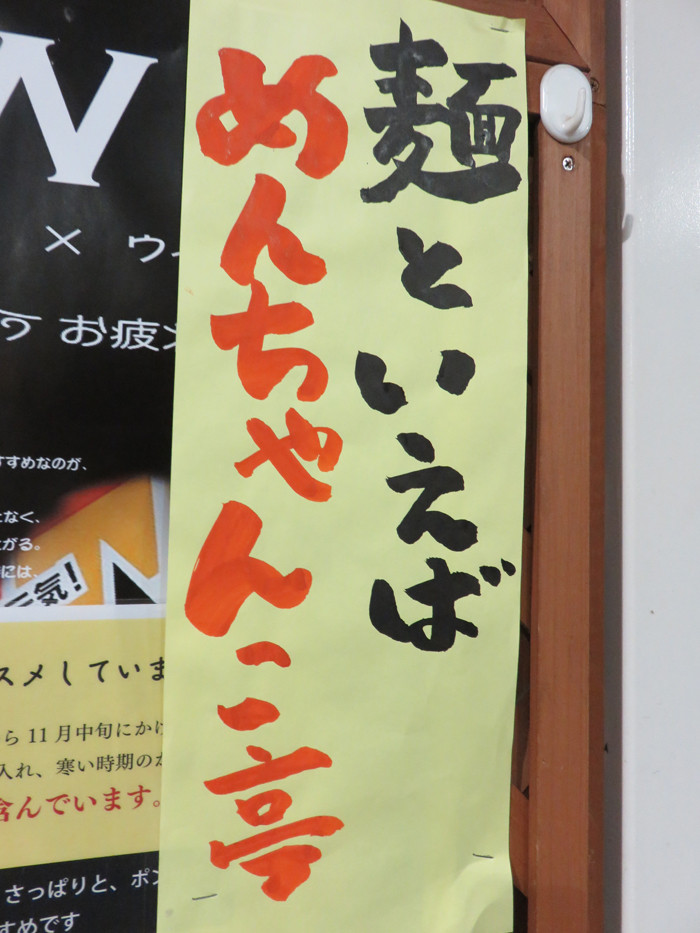 麺といえば
めんちゃんこ亭
W
× ウ
お疲
すすめなのが、
なく、
がる。
には、
元気!
スメしていま
ら11月中旬にか
入れ、寒い時期の
含んでいます。
さっぱりと、ポン
すめです